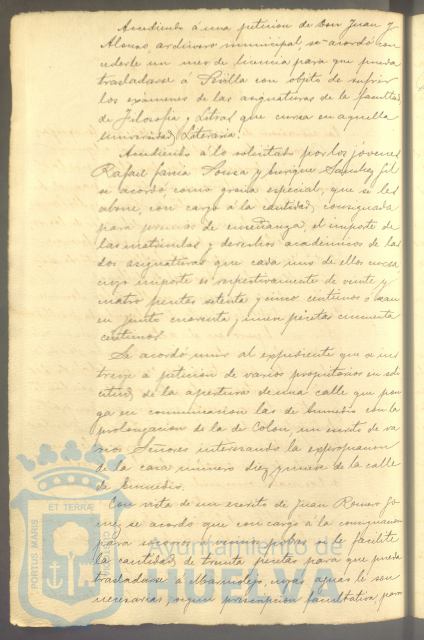 Accediendo á una peticion de Don Juan y
Alonso, archivero municipal, se acordó con
cederle un mes de licencia para que pueda
trasladarse á Sevilla con objeto de sufrir
los exámenes de las asignaturas de la facultad
de Filosofía y Letras que cursa en aquella
universidad Literaria.
Accediendo á lo solicitado por los jóvenes
Rafael García Sousa y Enrique Sanchez Gil
se acordó como gracia especial, que se les
abone, con cargo á la cantidad consignada
para premios de enseñanza, el importe de
las matrículas y derechos académicos de las
dos asignaturas que cada uno de ellos cursa
cuyo importe es respectivamente de veinte y
cuatro pesetas setenta y cinco centimos ó sean
en junto cuarenta y nueve pesetas cincuenta
centimos.
Se acordó unir al expediente que se ins
truye á peticion de varios propietarios en soli
citud de la apertura de una calle que pon
ga en comunicacion las de Enmedio con la
prolongacion de la de Colon, un escrito de va
rios Señores interesando la expropiacion
de la casa número diez y nueve de la calle
de Enmedio.
Con vista de un escrito de Juan Romero Go
mez se acordó que con cargo á lo consignado
para socorros á vecinos pobres se le facilite
la cantidad de treinta pesetas para que pueda
trasladarse á Marmolejo, cuyas aguas le son
necesarias, segun prescripcion facultativa, para
PORTUS MARIS ET TERRÆ CUSTODIA
Ayuntamiento de
HUELVA